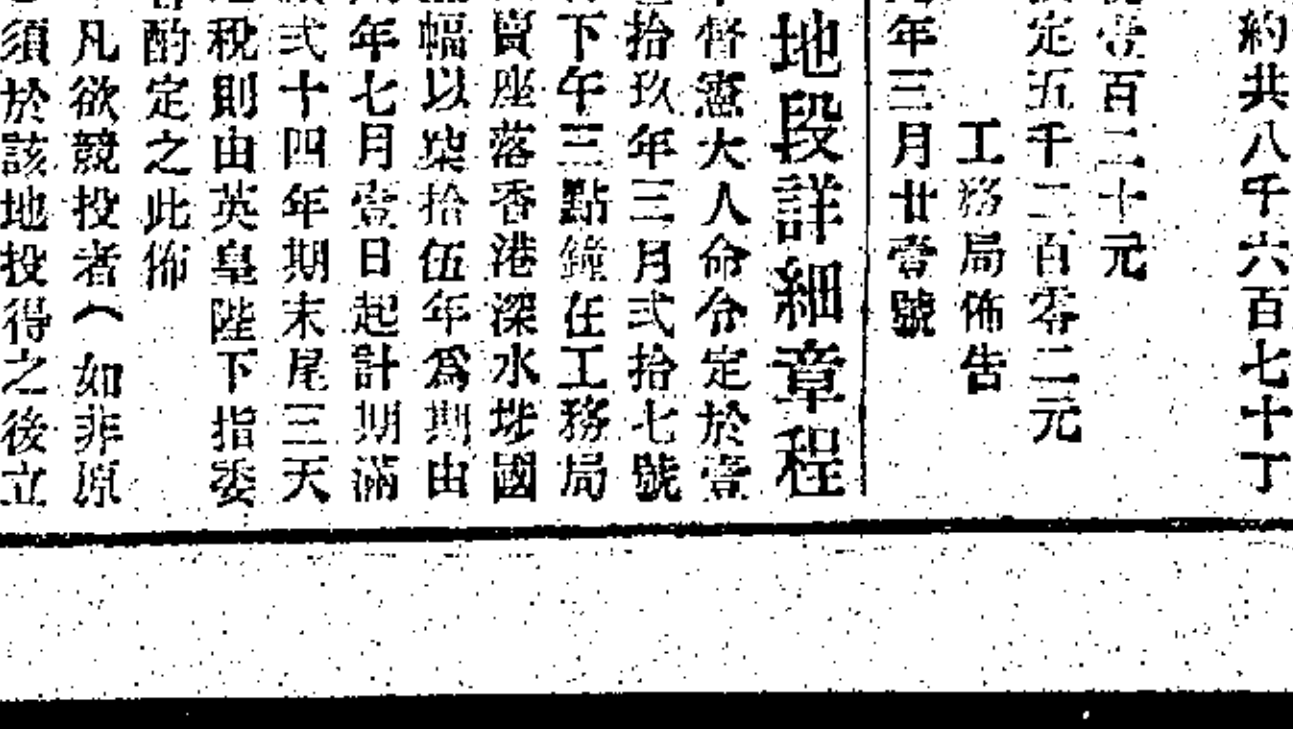 約共八千六百七十丁
壹百二十元
定五千二百零二元
工務局佈告
年三月廿壹號
地段詳細章程
督憲大人命令定於壹
拾玖年三月式拾七號
下午三點鐘在工務局
賣座落香港深水埗國
幅以柒拾伍年爲期由
年七月壹日起計期滿
式十四年期末尾三天
稅則由英皇陛下指委
酌定之此佈
凡欲競投者(如非原
須於該地投得之後立